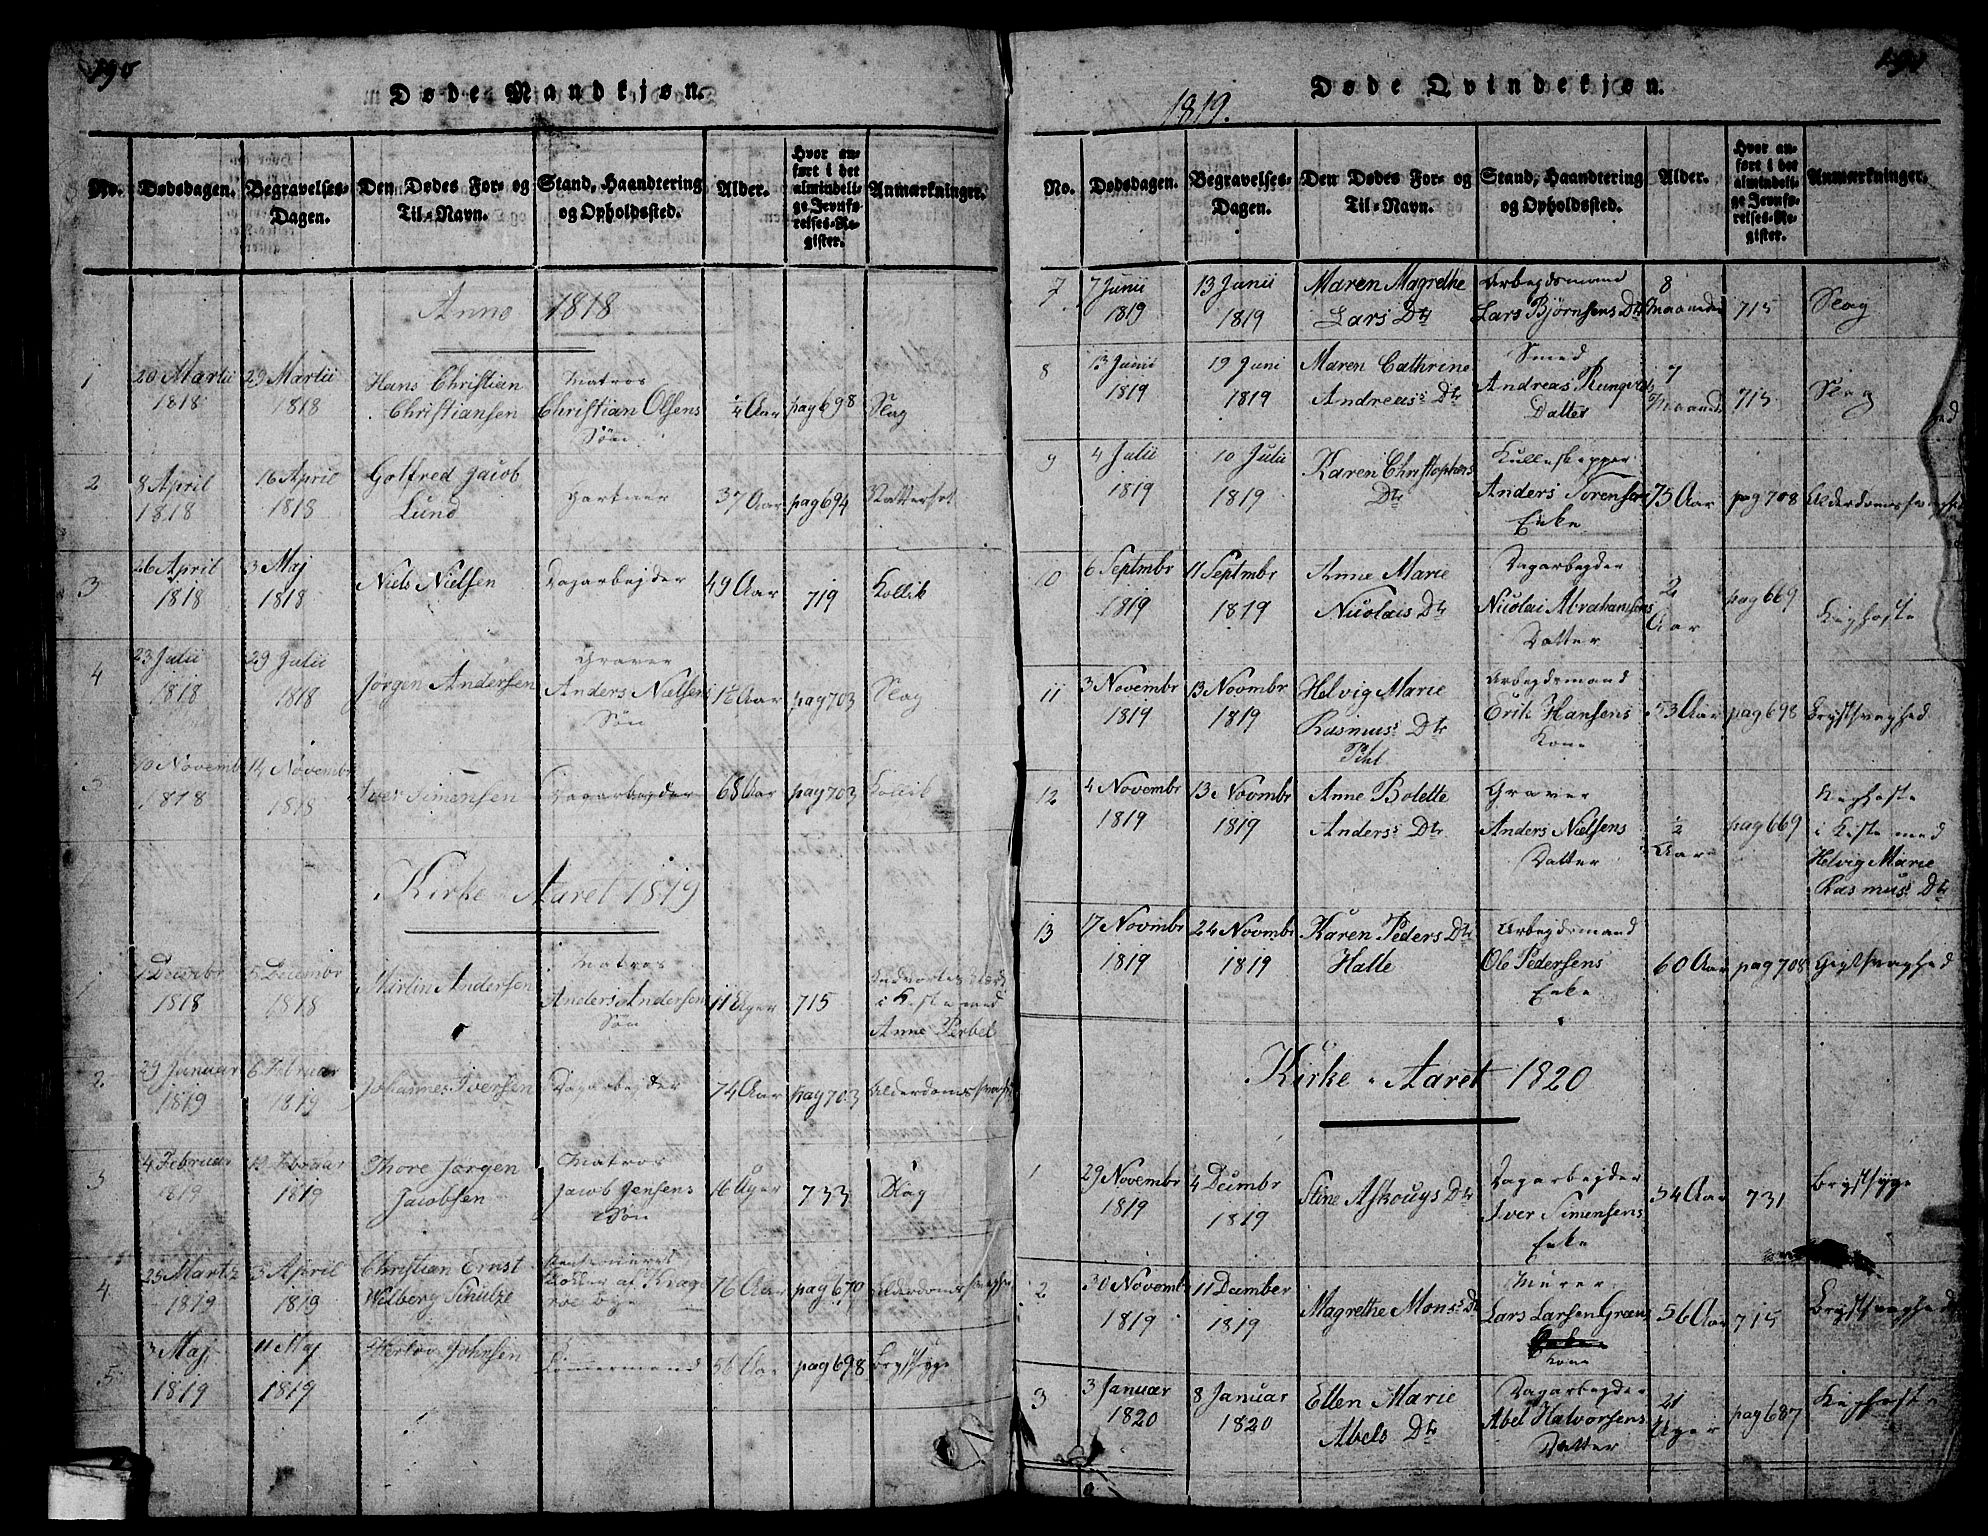 190
Døde Mandkjøn.
No.
Dødsdagen.
Begravelses-
Dagen.
Den Dødes For- og
Til-Navn.
Stand, Haandtering
og Opholdssted.
Alder.
Hvor an-
ført i det
almindeli-
ge Jevnfø-
relses-Re-
gister.
Anmærkninger.
Anno 1818
1
20 Martii
1818
29 Martii
1818
Hans Christian
Christiansen
Matros
Christian Olsens
Søn
1/4 Aar
pag 698
Slag
2
8 April
1818
16 April
1818
Gotfred Jacob
Lund
Gartner
37 Aar
pag 694
3
26 April
1818
3 Maj
1818
Niels Nielsen
Dagarbejder
49 Aar
719
Kollik
4
23 Julii
1818
29 Julii
1818
Jørgen Andersen
Graver
Anders Nielsens
Søn
pag 703
Slag
10 Novembr
1818
14 Novembr
1818
Iver Simensen
Dagarbejder
68 Aar
pag 703
Kolik
Kirke-Aaret 1819
1
1 Decembr
1818
5 Decembr
1818
Martin Andersen
Matros
Anders Andersens
Søn
11 Uger
715
i Kiste med
Anne
2
29 Januar
1819
6 Februar
1819
Johannes Iversen
Dagarbejder
74 Aar
pag 703
Alderdomssvaghed
3
4 Februar
1819
12 Februar
1819
Thore Jørgen
Jacobsen
Matros
Jacob Jensens
Søn
16 Uger
733
Slag
4
25 Martz
1819
3 April
1819
Christian Ernst
Wilberg Schulze
af Krage
røe Bye
76 Aar
pag 670
Alderdomssvaghed
5
3 Maj
1819
11 Maj
1819
Johnsen
Bondemand
56 Aar
pag 698
Brystsyge
191
Døde Qvindekjøn.
1819.
No.
Dødsdagen.
Begravelses-
Dagen.
Den Dødes For- og
Til-Navn.
Stand, Haandtering
og Opholdssted.
Alder.
Hvor an-
ført i det
almindeli-
ge Jevnfø-
relses-Re-
gister.
Anmærkninger.
7
7 Junii
1819
13 Junii
1819
Maren Magrethe
Lars Dtr
Arbejdsmand
Lars Bjørnsens Dtr
8
Maaneder
715
Slag
8
13 Junii
1819
19 Juni
1819
Maren Cathrine
Andreas Dtr
Smed
Andreas
Datter
7
Maaneder
715
Slag
9
4 Julii
1819
10 Julii
1819
Karen Christophers
Dtr
Anders Sørensens
Enke
75 Aar
pag 708
Alderdomssvaghed
10
6 Septmbr
1819
11 Septmbr
1819
Anne Marie
Nicolais Dtr
Dagarbejder
Nicolai Abrahamsens
Datter
2
Aar
pag 669
Kighoste
11
3 Novembr
1819
13 Novmbr
1819
Helvig Marie
Rasmus Dtr
Pihl
Arbejdsmand
Erik Hansens
Kone
53 Aar
pag 698
Brystsvaghed
12
4 Novembr
1819
13 Novmbr
1819
Anne Bolette
Anders Dtr
Graver
Anders Nielsens
Datter
1/2
Aar
pag 669
Kighoste
i Kiste med
Helvig Marie
Rasmus Dtr
13
17 Novmbr
1819
24 Novmbr
1819
Karen Peders Dtr
Halle
Arbejdsmand
Ole Pedersens
Enke
60 Aar
pag 708
Gigtsvaghed
Kirke-Aaret 1820
1
29 Novembr
1819
4 Decmbr
1819
Stine Askougs Dtr
Dagarbejder
Iver Simensens
Enke
54 Aar
731
Brystsyge
2
30 Novembr
1819
11 December
1819
Magrethe Mons Dtr
Murer
Lars Larsen Grøens
Enke
Kone
56 Aar
715
Brystsvaghed
3
3 Januar
1820
8 Januar
1820
Ellen Marie
Abels Dtr
Dagarbejder
Abel Halvorsens
Datter
21
Uger
pag 687
Kighoste